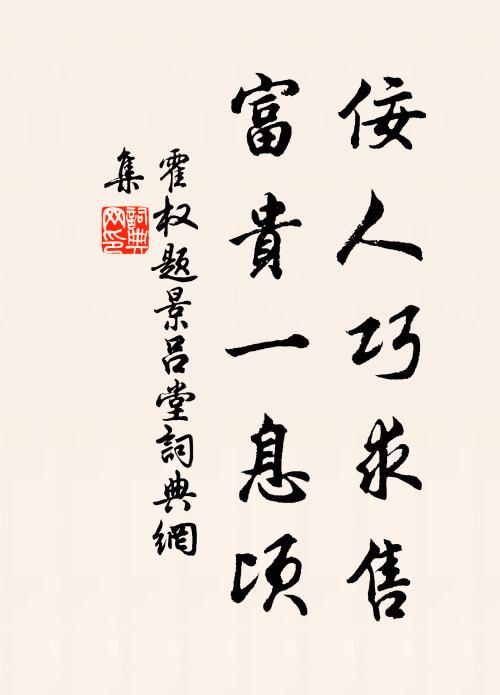 佞人巧求售
富貴一息頃
霍权题景吕堂詞典網
集
詞典网印